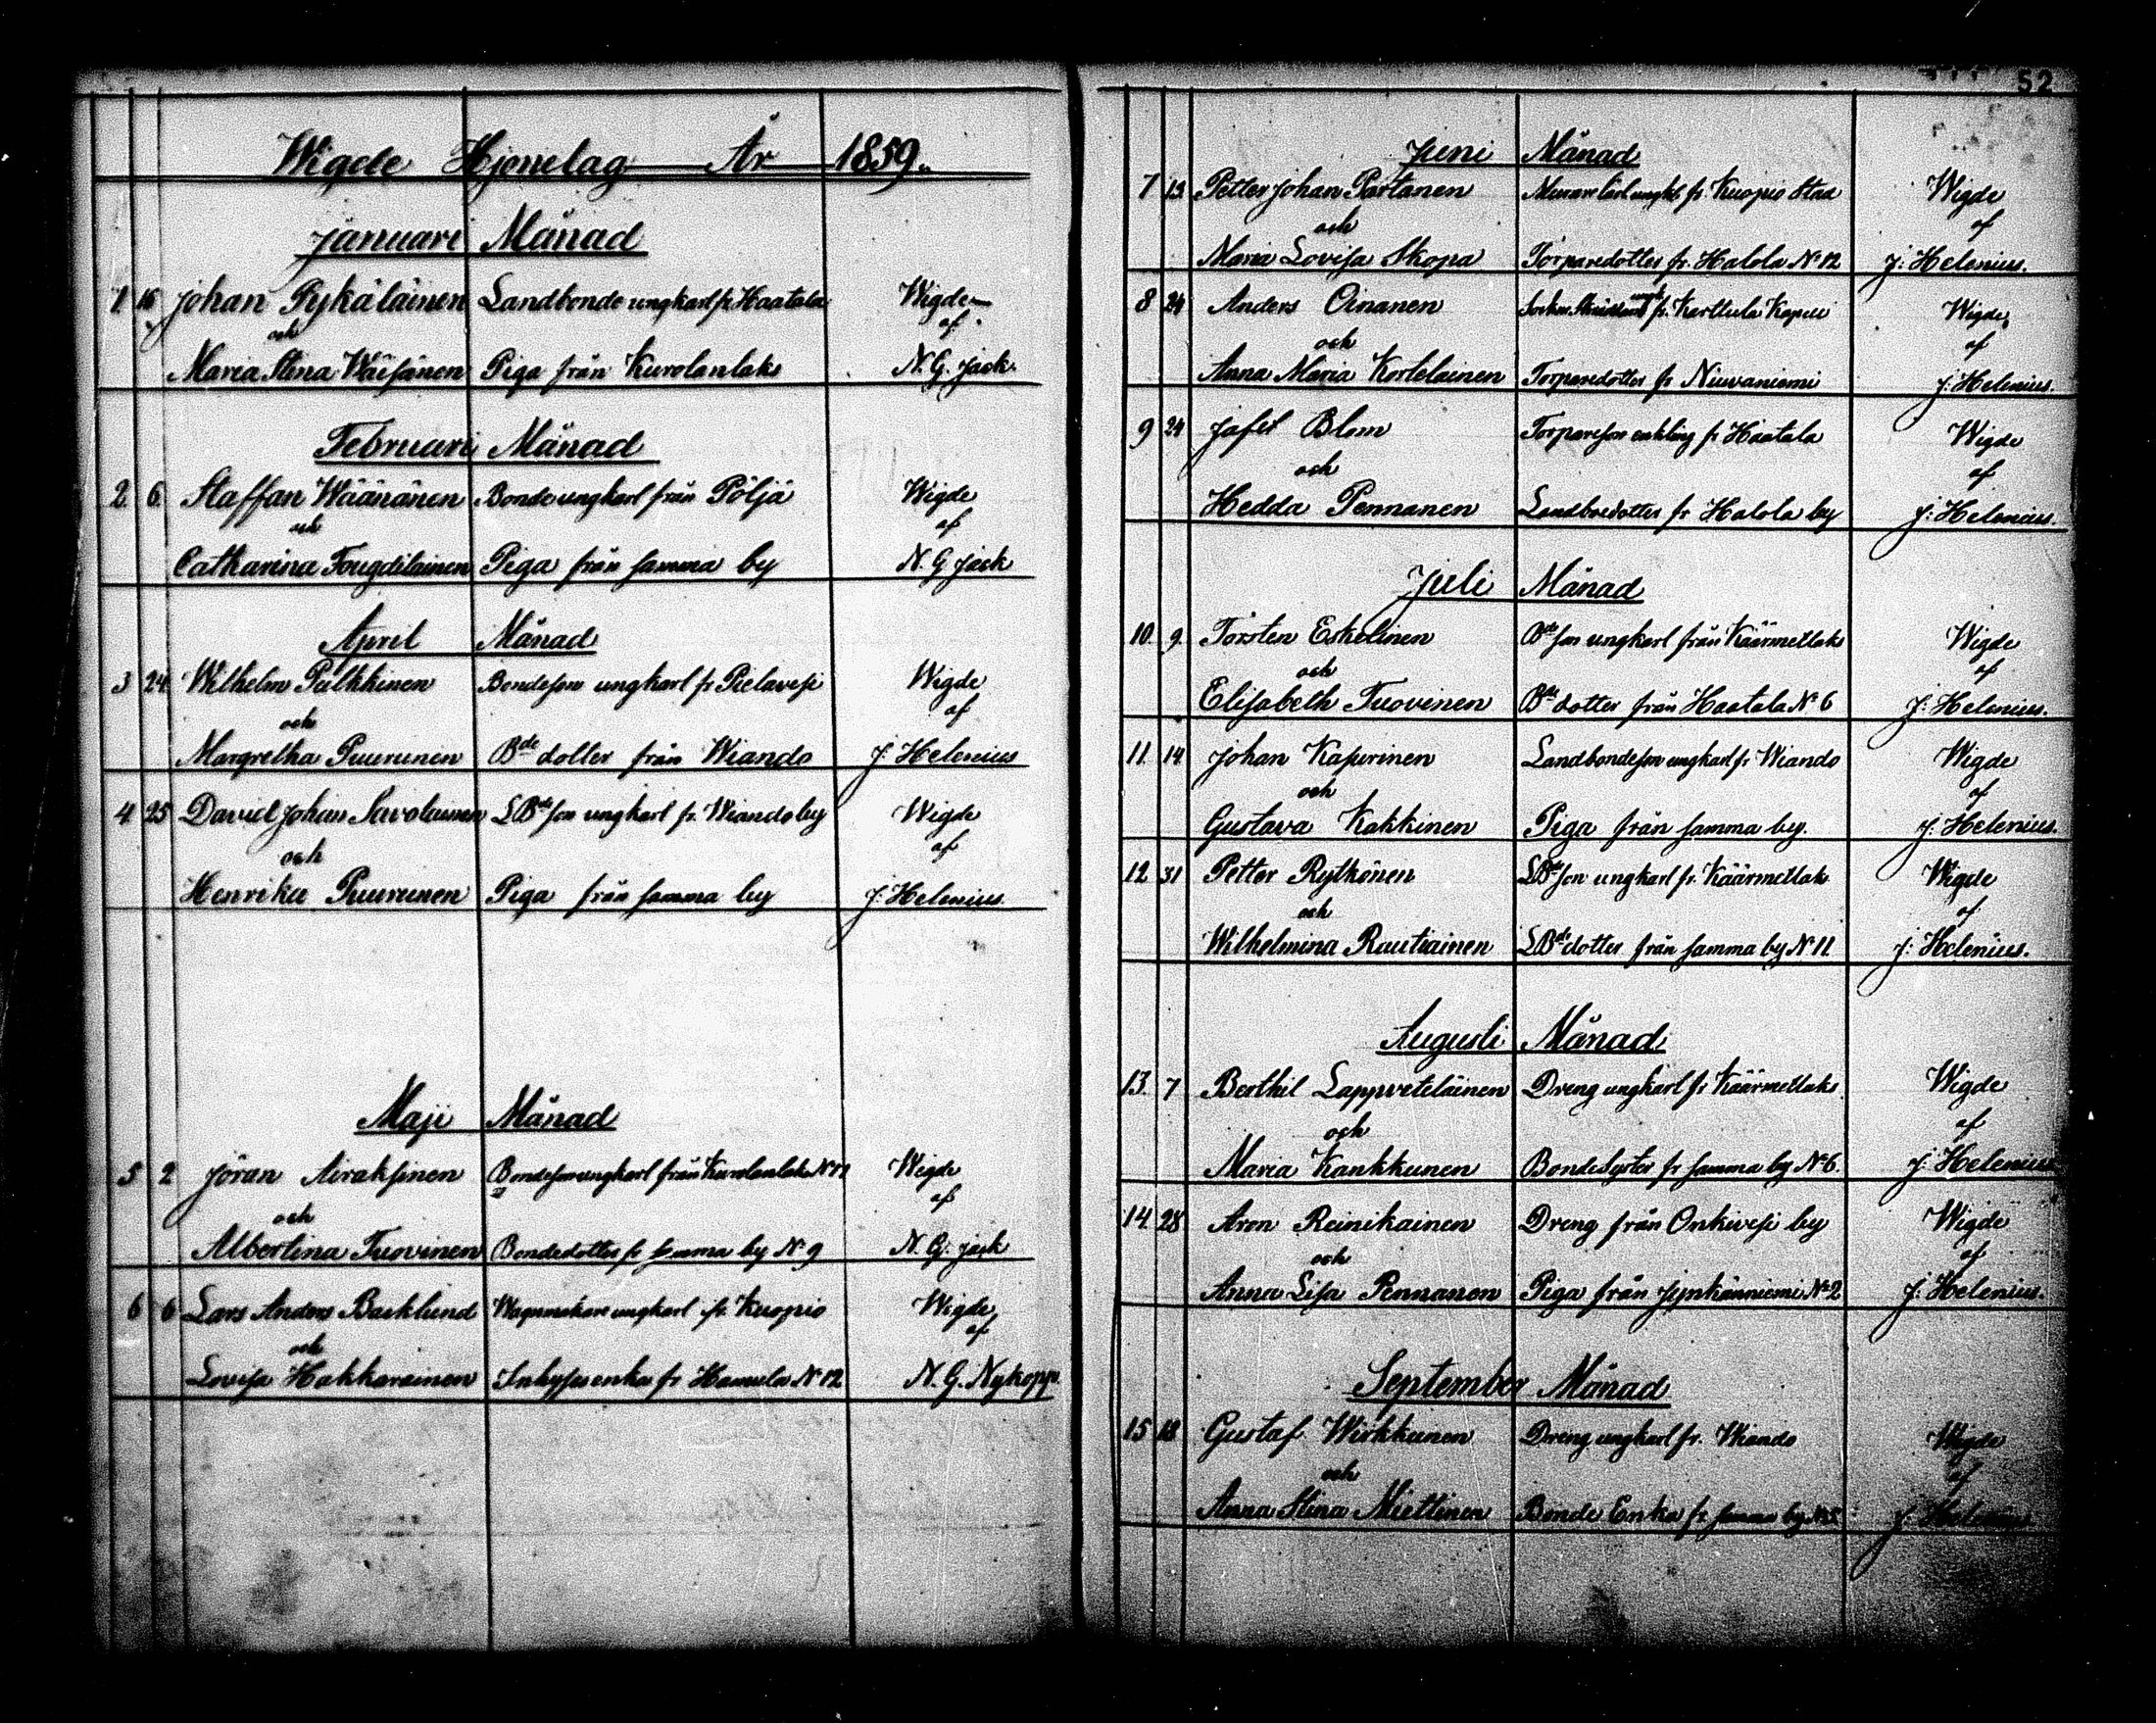 Wigde Hjonelag År 1859.
Januari Månad
1. 16 Johan Pykäläinen Landbonde ungkarl fr Haatala Wigde
och af
Maria Stina Wäisänen Piga från Kurolanlaks N. G. Jack.
Februari Månad
2. 6. Staffan Wäänänen Bonde ungkarl från Pöljä Wigde
och af
Catharina Tougdilainen Piga från samma by N. G Jack
April Månad
3 24 Wilhelm Pulkkinen Bondeson ungkarl fr Pielavesi Wigde
och af
Margretha Puurunen Bde dotter från Wiando J. Helenius
4 25 David Johan Savolainen LBde son ungkarl fr. Wiando by Wigde
och af
Henrika Puurunen Piga från samma by J. Helenius
Maji Månad
5 2 Jöran Airaksinen Bondeson ungkarl från Kurolanlaks Wigde
och af
Albertina Tuovinen Bondedotter fr samma by No 9 N. G. Jack
6 6 Lars Anders Backlund Wagnmakare ungkarl fr Kuopio Wigde
och af
Lovisa Hakkarainen enka fr Hamula No 12 N. G. Nykopp.
52
Juni Månad
7 13 Petter Johan Partanen fr. Kuopio Stad Wigde
och af
Maria Lovisa Skopa Torparedotter fr. Halola No 12 J. Helenius.
8 24 Anders Oinanen fr. Karttula Kapell Wigde
och af
Anna Maria Kortelainen Torparedotter fr Niuvaniemi J. Helenius.
9 24 Jafet Blom Torpareson enkling fr Haatala Wigde
och af
Hedda Pennanen Landbdedotter fr Halola by J. Helenius.
Juli Månad
10. 9. Torsten Eskelinen Bde son ungkarl från Käärmetlaks Wigde
och af
Elisabeth Tuovinen Bde dotter från Haatala No 6 J. Helenius.
11. 14 Johan Kapurinen Landbondeson ungkarl fr Wiando Wigde
och af
Gustava Kakkinen Piga från samma by. J. Helenius.
12 31 Petter Rytkönen LBde son ungkarl fr. Käärmetlaks Wigde
och af
Wilhelmina Rautiainen LBde dotter från samma by No 11 J. Helenius.
Augusti Månad
13. 7 Berthil Lappveteläinen Dreng ungkarl fr Käärmetlaks Wigde
och af
Maria Kankkunen BondeSyster fr samma by No 6. J. Helenius
14. 28 Aron Reinikainen Dreng från Onkivesi by Wigde
och af
Anna Lisa Pennanen Piga från Jynkänniemi No 2 J. Helenius.
September Månad
15 18 Gustaf Wirkkunen Dreng ungkarl fr. Wiando Wigde
och af
Anna Stina Miettinen Bonde Enka fr samma by No 5. J. Helenius